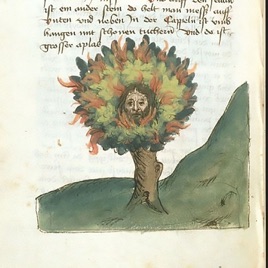 ist ein ander stein do helt man mess auff
vnten vnd neben In der Cappeln ist vmb
hangen mit schonen tuchern vnd da ist
grosser aplas